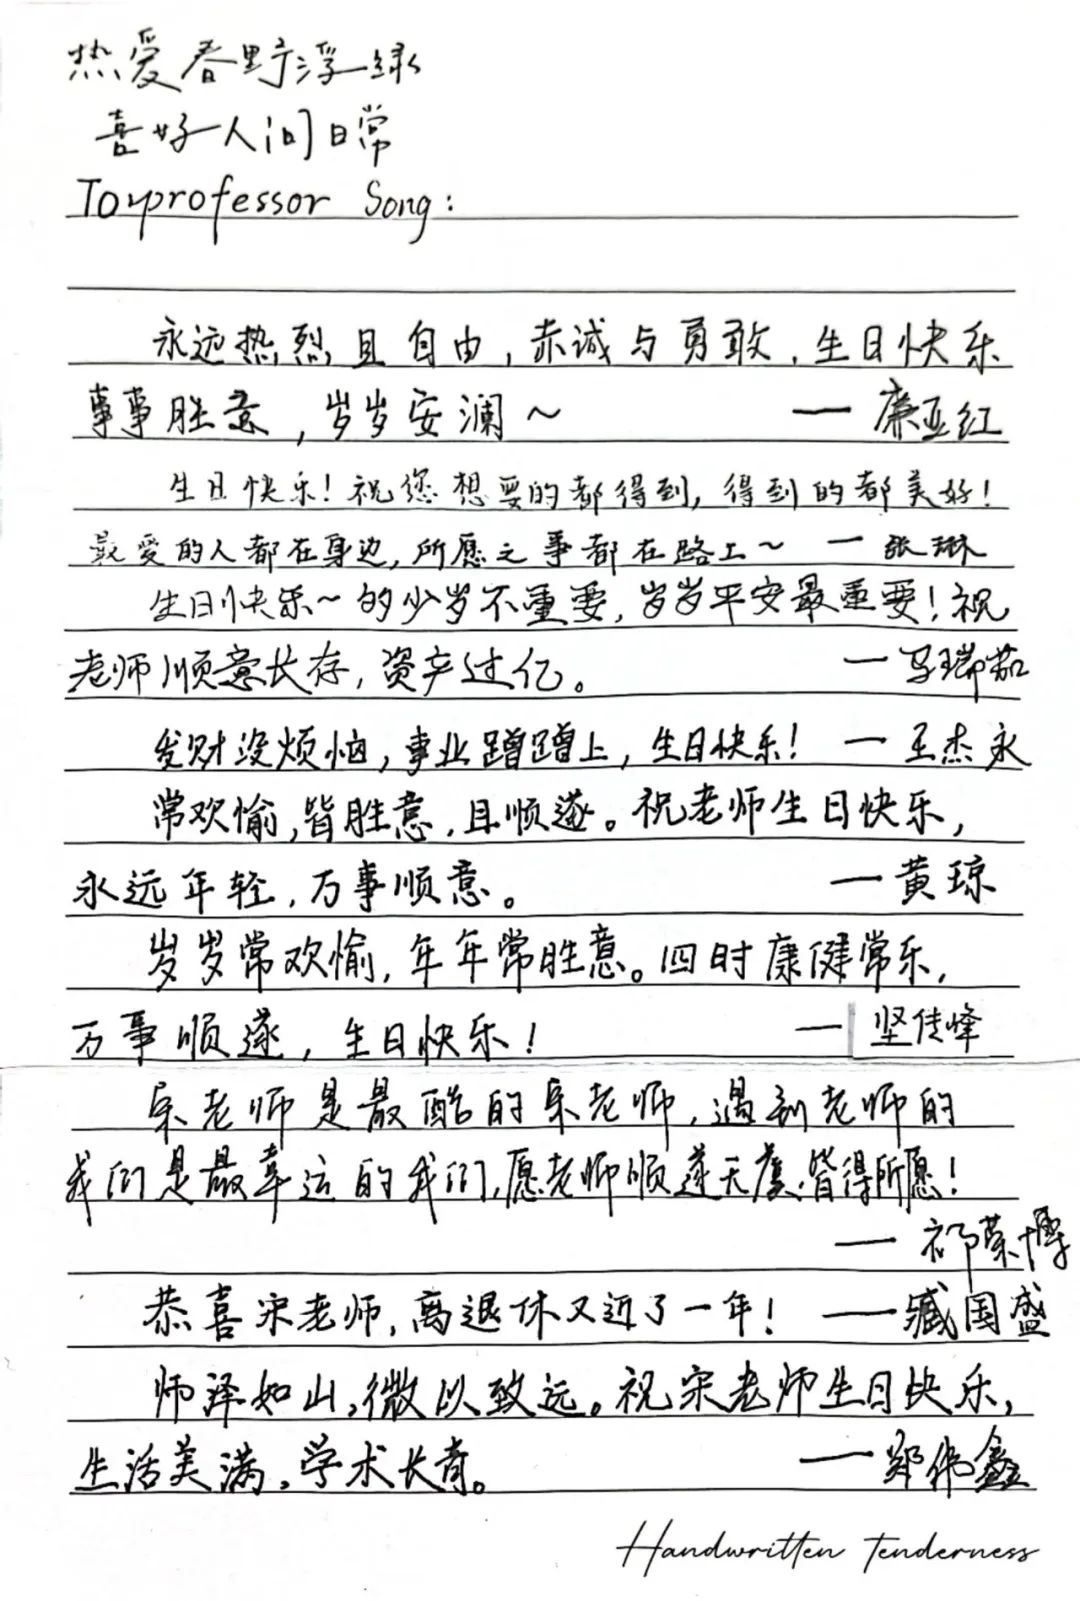 热爱春野浮绿
喜好人间日常
To professor Song:
永远热烈且自由,赤诚与勇敢,生日快乐
事事胜意,岁岁安澜~ —廉亚红
生日快乐!祝您想要的都得到,得到的都美好!
最爱的人都在身边,所愿之事都在路上~ —张琳
生日快乐~的少岁不重要,岁岁平安最重要!祝
老师顺意长存,资产过亿。 —马瑞茹
发财没烦恼,事业蹭蹭上,生日快乐! —王杰永
常欢愉,皆胜意,且顺遂。祝老师生日快乐,
永远年轻,万事顺意。 —黄琼
岁岁常欢愉,年年常胜意。四时康健常乐,
万事顺遂,生日快乐! —坚佳峰
宋老师是最酷的宋老师,遇到老师的
我们是最幸运的我们,愿老师顺遂无虞,皆得所愿!
—祁荣博
恭喜宋老师,离退休又近了一年! —臧国盛
师泽如山,微以致远。祝宋老师生日快乐,
生活美满,学术长青。 —郑伟鑫
Handwritten tenderness